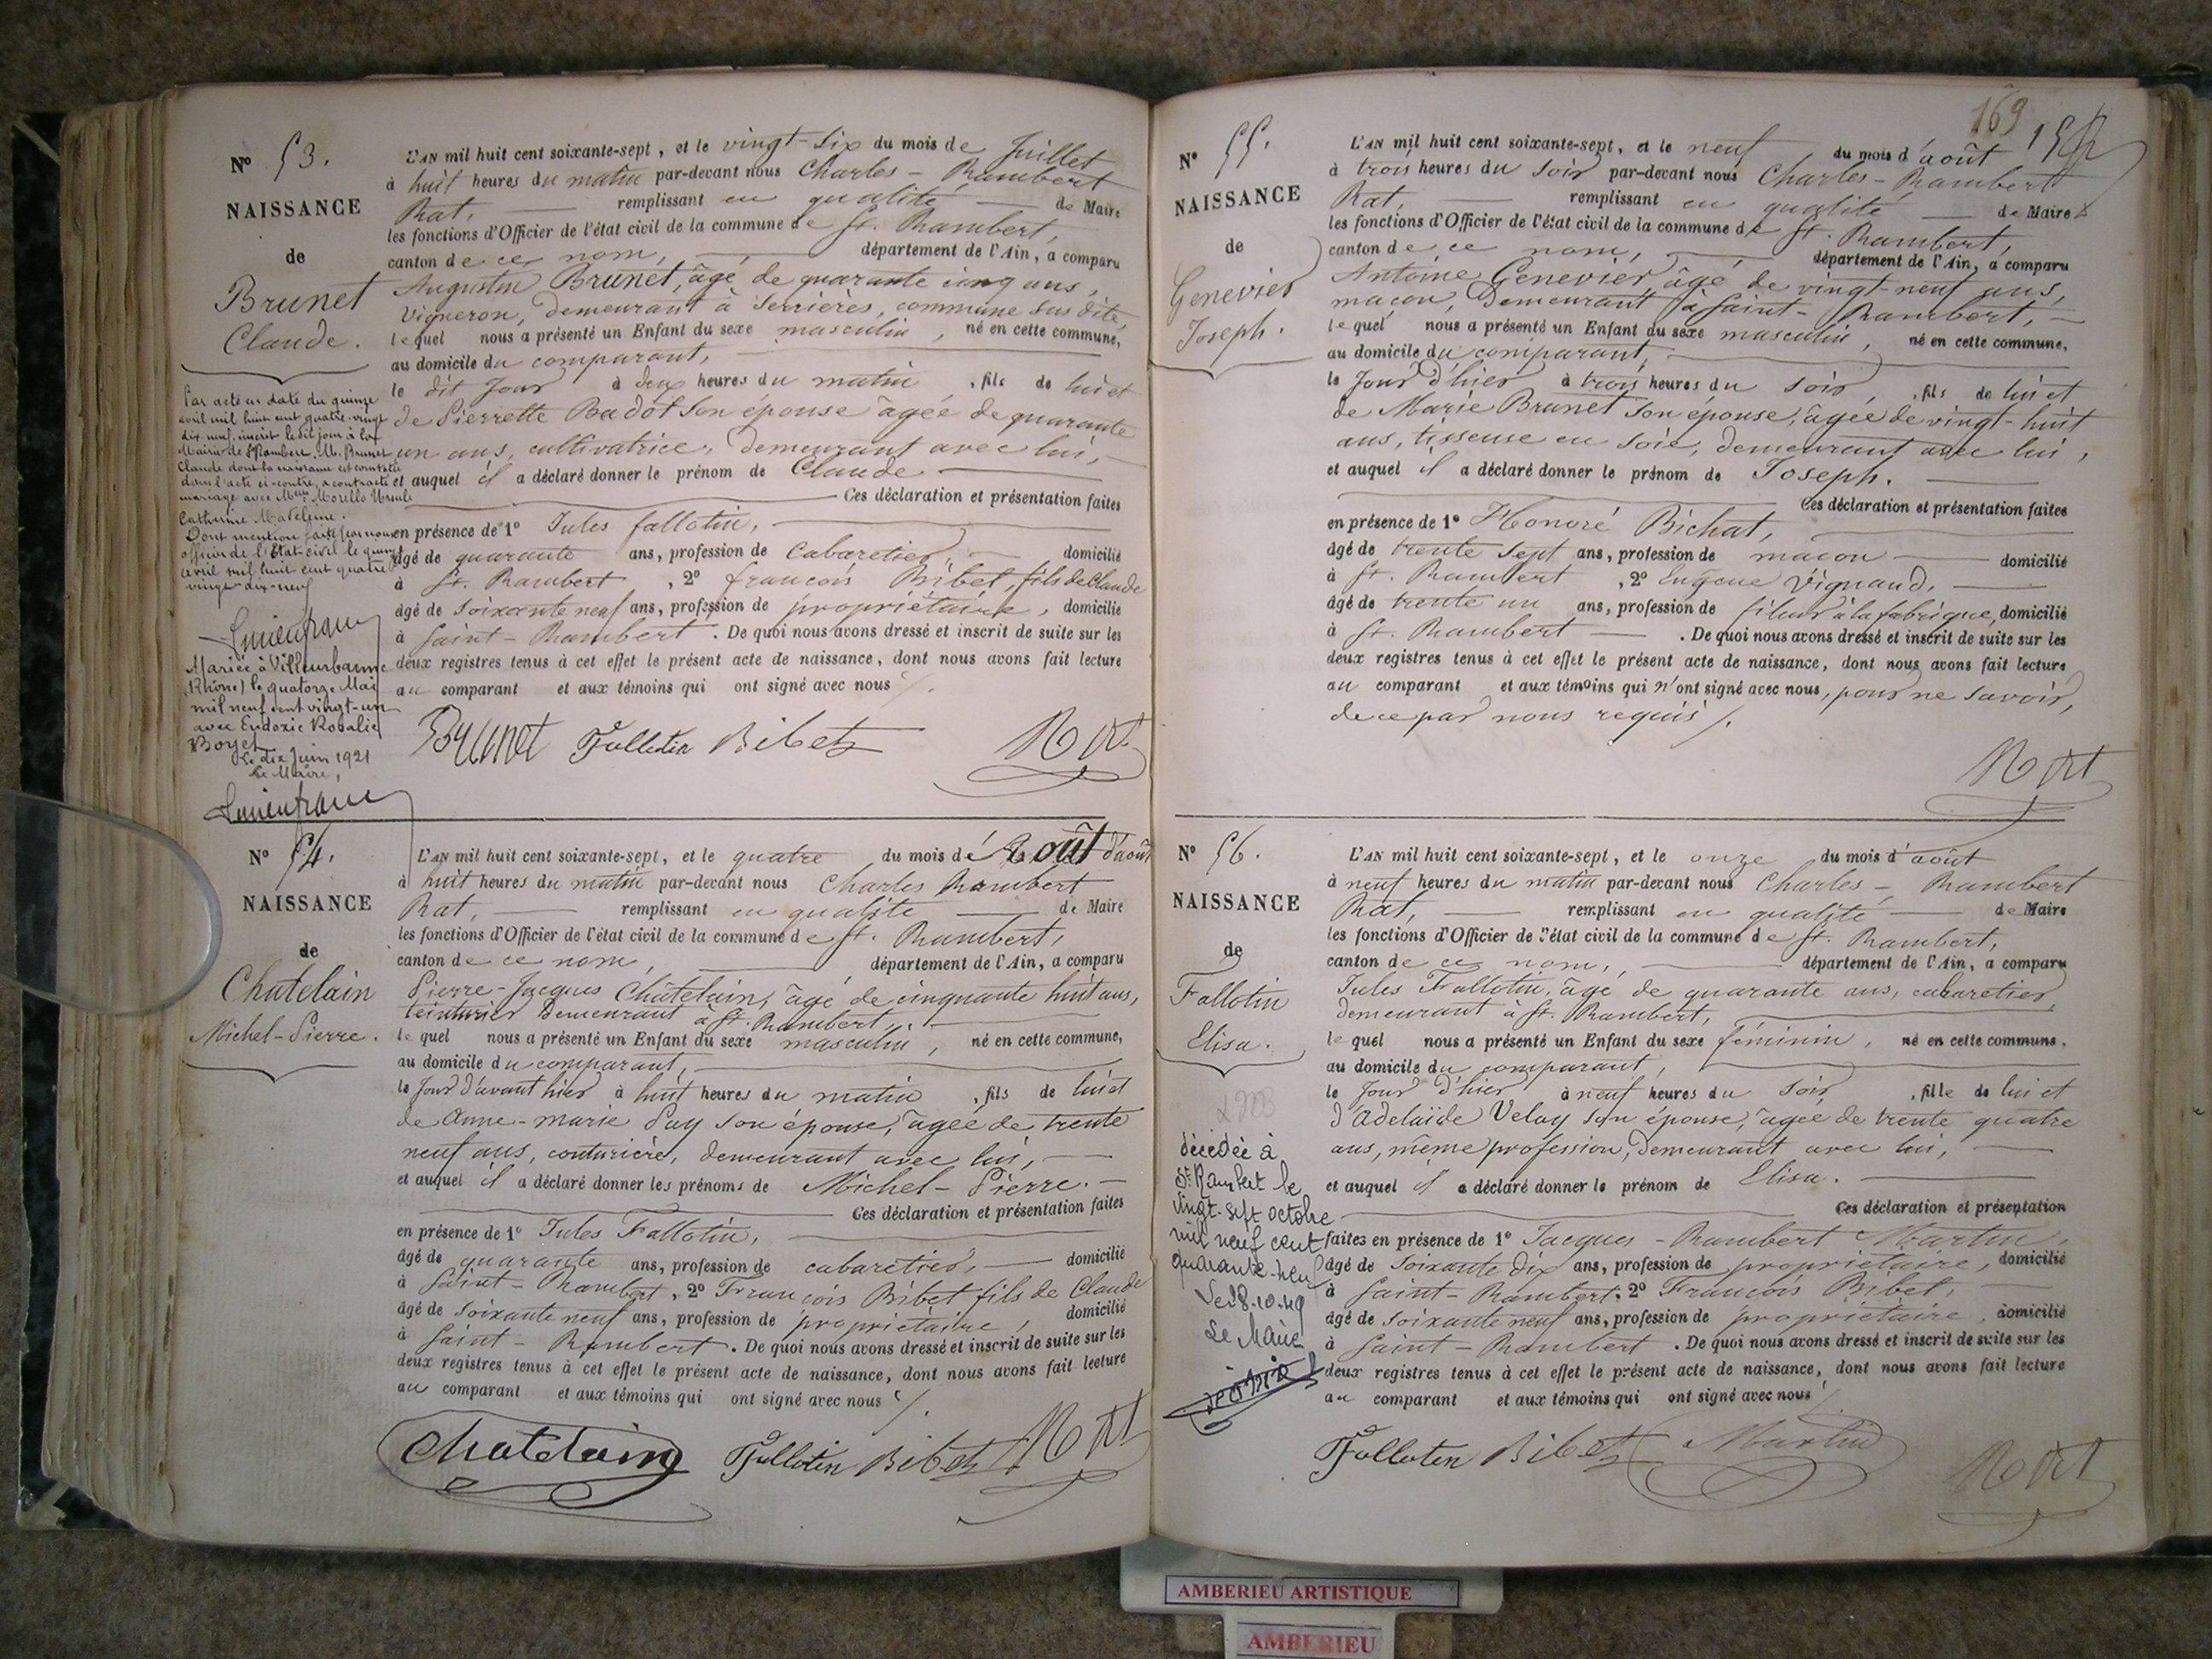 N° 53.
NAISSANCE
de
Brunet
Claude.
Par acte en date du quinze
avril mil huit cent quatre-vingt
dix-neuf, inscrit le dit jour à la
Mairie de St Rambert, M. Brunet
Claude dont la naissance est constatée
dans l'acte ci-contre, a contracté
mariage avec Melle Morello Ursule
Catherine Madeleine.
Dont mention faite par nous
officier de l'Etat-civil le quinze
avril mil huit cent quatre
vingt-dix-neuf
Mariée à Villeurbanne
(Rhône) le quatorze Mai
mil neuf cent vingt-un
avec Eudoxie Rosalie
Boyet
Le dix Juin 1921
Le Maire,
L'AN mil huit cent soixante-sept, et le vingt-six du mois de Juillet
à huit heures du matin par-devant nous Charles-Rambert
Rat, remplissant en qualité de Maire
les fonctions d'Officier de l'état civil de la commune de St. Rambert,
canton de ce nom, département de l'Ain, a comparu
Augustin Brunet, âgé de quarante cinq ans,
Vigneron, demeurant à Serrières, commune sus dite,
lequel nous a présenté un Enfant du sexe masculin, né en cette commune,
au domicile du comparant,
le dit Jour à deux heures du matin, fils de lui et
de Pierrette Badot son épouse âgée de quarante
un ans, cultivatrice, demeurant avec lui,
et auquel il a déclaré donner le prénom de Claude
Ces déclaration et présentation faites
en présence de 1° Jules fallotin,
âgé de quarante ans, profession de Cabaretier, domicilié
à St. Rambert, 2° françois Bibet, fils de Claude
âgé de soixante neuf ans, profession de propriétaire, domicilié
à Saint-Rambert. De quoi nous avons dressé et inscrit de suite sur les
deux registres tenus à cet effet le présent acte de naissance, dont nous avons fait lecture
au comparant et aux témoins qui ont signé avec nous
Brunet Fallotin Bibet Rat
N° 54.
NAISSANCE
de
Chatelain
Michel-Pierre.
L'AN mil huit cent soixante-sept, et le quatre du mois de Août d'août
à huit heures du matin par-devant nous Charles Rambert
Rat, remplissant en qualité de Maire
les fonctions d'Officier de l'état civil de la commune de St. Rambert,
canton de ce nom, département de l'Ain, a comparu
Pierre-Jacques Châtelain, âgé de cinquante huit ans,
teinturier demeurant à St. Rambert,
le quel nous a présenté un Enfant du sexe masculin, né en cette commune,
au domicile du comparant,
le Jour d'avant hier à huit heures du matin, fils de lui et
de Anne-marie Puy son épouse, âgée de trente
neuf ans, couturière, demeurant avec lui,
et auquel il a déclaré donner les prénoms de Michel-Pierre.
Ces déclaration et présentation faites
en présence de 1° Jules Fallotin,
âgé de quarante ans, profession de cabaretier, domicilié
à Saint-Rambert, 2° François Bibet fils de Claude
âgé de soixante neuf ans, profession de propriétaire, domicilié
à Saint-Rambert. De quoi nous avons dressé et inscrit de suite sur les
deux registres tenus à cet effet le présent acte de naissance, dont nous avons fait lecture
au comparant et aux témoins qui ont signé avec nous
Chatelain Fallotin Bibet Rat
169
N° 55.
NAISSANCE
de
Genevier
Joseph.
L'AN mil huit cent soixante-sept, et le neuf du mois d'août
à trois heures du soir par-devant nous Charles-Rambert
Rat, remplissant en qualité de Maire
les fonctions d'Officier de l'état civil de la commune de St. Rambert,
canton de ce nom, département de l'Ain, a comparu
Antoine Genevier, âgé de vingt-neuf ans,
maçon, demeurant à Saint-Rambert,
lequel nous a présenté un Enfant du sexe masculin, né en cette commune,
au domicile du comparant,
le Jour d'hier à trois heures du soir, fils de lui et
de Marie Brunet son épouse, âgée de vingt-huit
ans, tisseuse en soie, demeurant avec lui,
et auquel il a déclaré donner le prénom de Joseph.
Ces déclaration et présentation faites
en présence de 1° Honoré Bichat,
âgé de trente sept ans, profession de maçon domicilié
à St. Rambert, 2° Eugène Vignaud,
âgé de trente un ans, profession de fileur à la fabrique, domicilié
à St. Rambert. De quoi nous avons dressé et inscrit de suite sur les
deux registres tenus à cet effet le présent acte de naissance, dont nous avons fait lecture
au comparant et aux témoins qui n'ont signé avec nous, pour ne savoir,
de ce par nous requis
Rat
N° 56.
NAISSANCE
de
Fallotin
Elisa.
décédée à
St Rambert le
vingt-sept octobre
mil neuf cent
quarante-neuf
Le 28.10.49
Le Maire
L'AN mil huit cent soixante-sept, et le onze du mois d'août
à neuf heures du matin par-devant nous Charles-Rambert
Rat, remplissant en qualité de Maire
les fonctions d'Officier de l'état civil de la commune de St. Rambert,
canton de ce nom, département de l'Ain, a comparu
Jules Fallotin, âgé de quarante ans, cabaretier,
demeurant à St. Rambert,
lequel nous a présenté un Enfant du sexe féminin, né en cette commune,
au domicile du comparant,
le Jour d'hier à neuf heures du soir, fille de lui et
d'Adelaïde Velay son épouse, âgée de trente quatre
ans, même profession, demeurant avec lui,
et auquel il a déclaré donner le prénom de Elisa.
Ces déclaration et présentation
faites en présence de 1° Jacques-Rambert Martin,
âgé de soixante dix ans, profession de propriétaire, domicilié
à Saint-Rambert, 2° François Bibet,
âgé de soixante neuf ans, profession de propriétaire, domicilié
à Saint-Rambert. De quoi nous avons dressé et inscrit de suite sur les
deux registres tenus à cet effet le présent acte de naissance, dont nous avons fait lecture
au comparant et aux témoins qui ont signé avec nous
Fallotin Bibet Martin Rat
AMBERIEU ARTISTIQUE
AMBERIEU